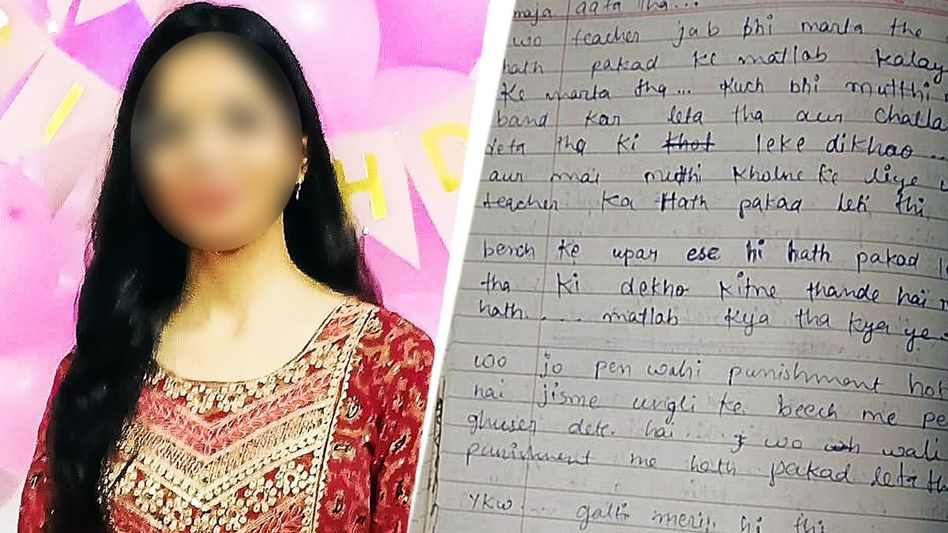 I
H D
maja aata tha...
wo teacher jab bhi marta the
hath pakad ke matlab kalay
ke marta tha... Kuch bhi mutthi
band kar leta tha aur challa
leta tha ki khot leke dikhao ...
aur mai mutthi kholne ke liye
teacher ka Hath pakad leti thi,
bench ke upar ese hi hath pakad
tha ki dekho kitne thande hai
hath ... matlab kya tha kya ye
wo jo pen wahi punishment hot
hai jisme ungli ke beech me pe
ghuser dete hai... wo wali
punishment me hath pakad leta th
YKW... galti meri hi thi